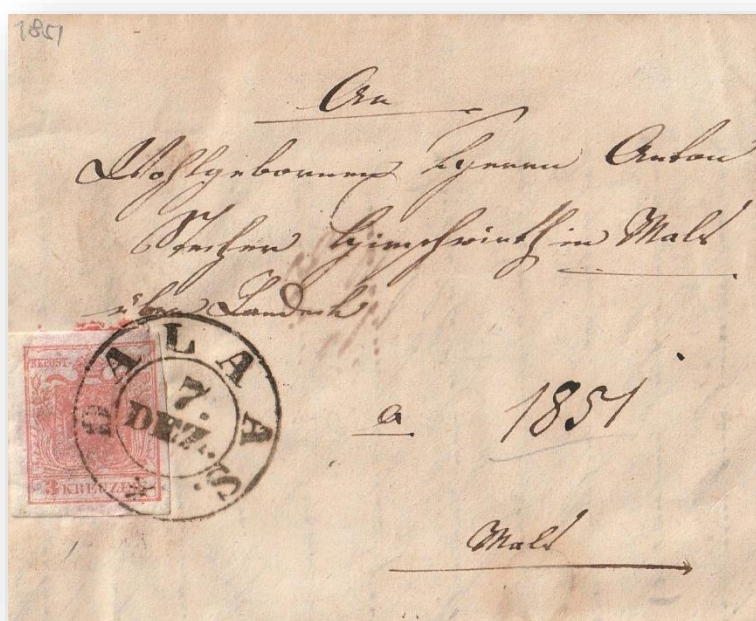 1851
An
Wohlgebornen Herrn Anton
Stecher Hirschwirth in Mals
über Landeck
KK POST-
3 KREUZER
DALAAS.
7.
DEZ.
a 1851
Mals